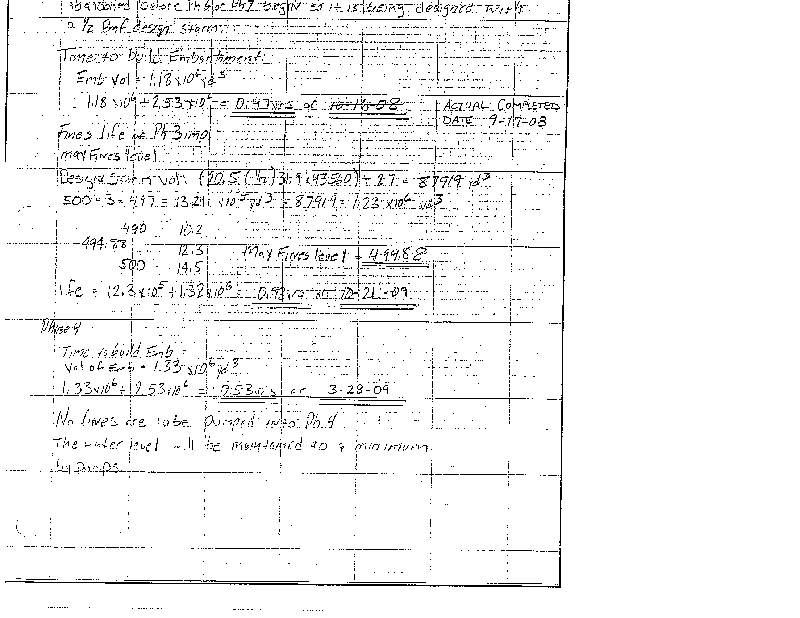 abandoned before Ph 6 or Ph 7 begin so it is being designed with
a 1/2 PMF design storm.
Time to Build Embankment:
Emb Vol = 1.18 x 10⁶ yd³
1.18 x 10⁶ ÷ 2.53 x 10⁶ = 0.47 yrs or
ACTUAL COMPLETED
DATE 9-17-08
Fines Life in Ph 3 imp
Max Fines level
Design Storm Vol: ÷ 27 = 87919 yd³
500 - 3 = 497 = = 87919 = 1.23 x 10⁶ yd³
490 10.2
494.88 12.3 Max Fines level = 494.88
500 14.5
life = 12.3 x 10⁵ ÷ 1.32 x 10⁶ =
Phase 4
Time to build Emb =
Vol of Emb = 1.33 x 10⁶ yd³
1.33 x 10⁶ ÷ 2.53 x 10⁶ = 0.53 yrs or 3-28-09
No fines are to be pumped into Ph 4
The water level will be maintained to a minimum
by pumps